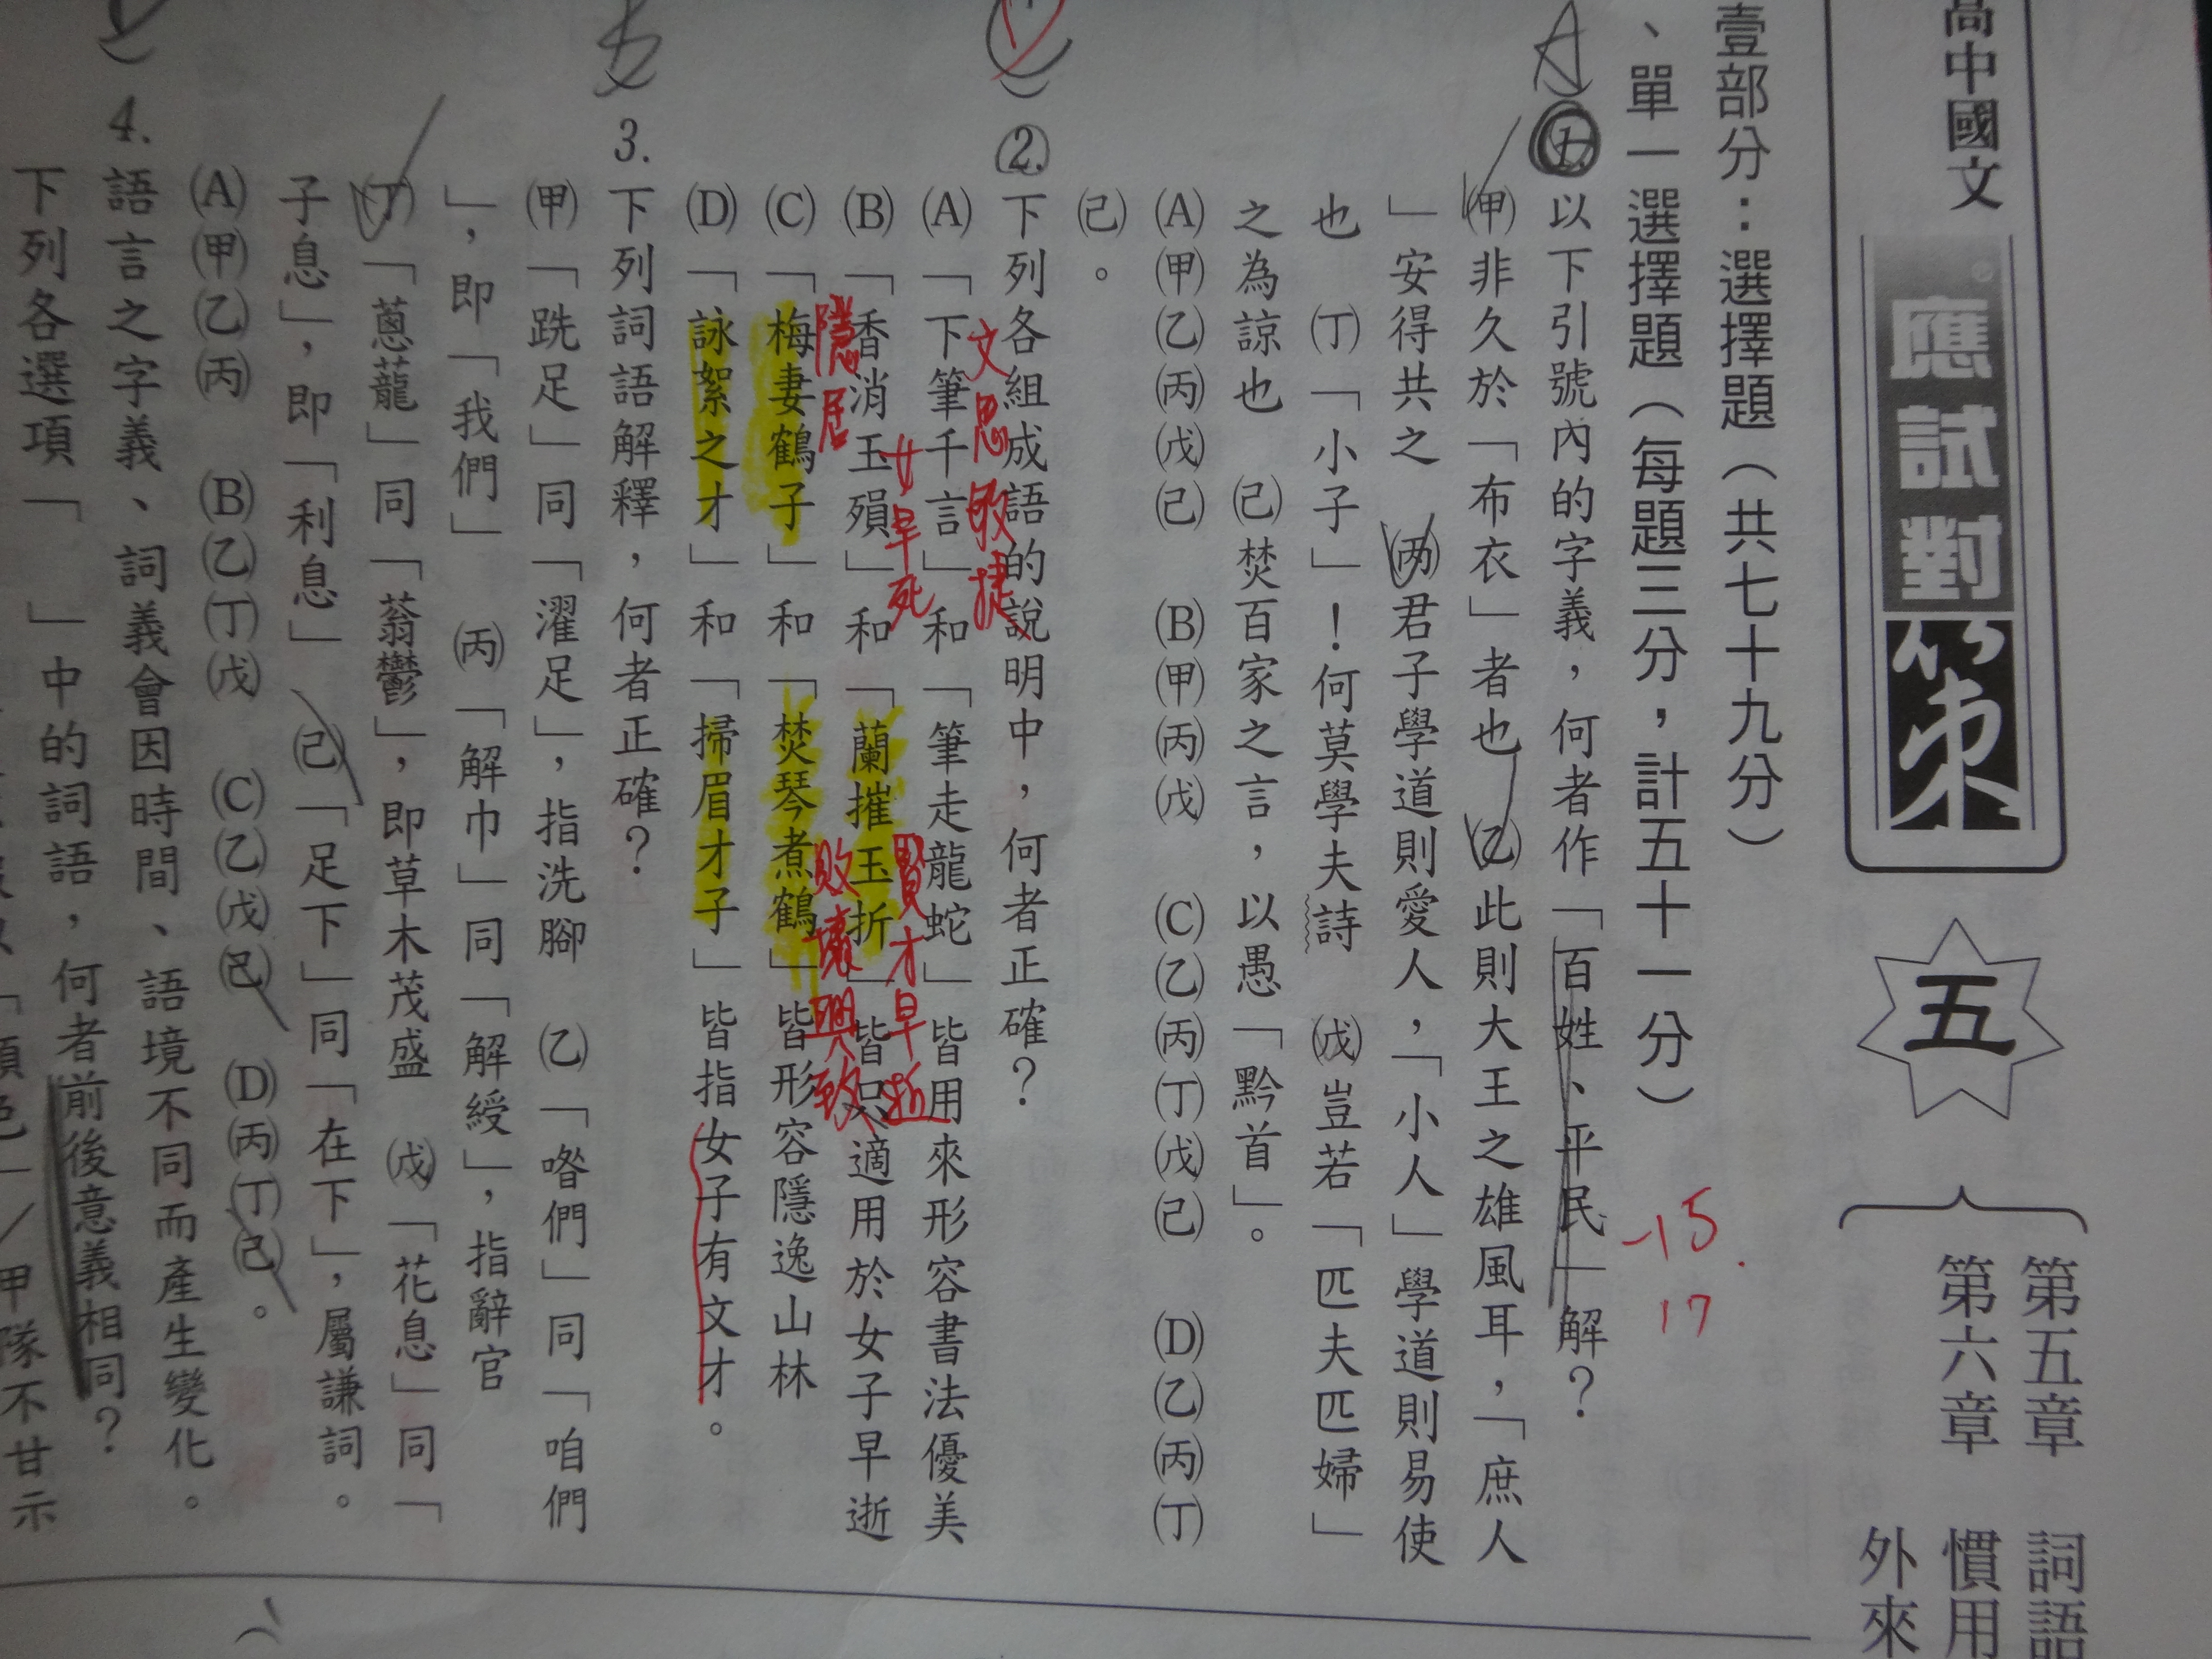 高中國文
應試對策
五
第五章 詞語
第六章 慣用
外來
壹部分：選擇題（共七十九分）
、單一選擇題（每題三分，計五十一分）
-15.
17
A
1.以下引號內的字義，何者作「百姓、平民」解？
㈙非久於「布衣」者也 ㈚此則大王之雄風耳，「庶人
」安得共之 ㈛君子學道則愛人，「小人」學道則易使
也 ㈜「小子」！何莫學夫詩 ㈝豈若「匹夫匹婦」
之為諒也 ㈞焚百家之言，以愚「黔首」。
(A)甲乙丙戊己 (B)甲丙戊 (C)乙丙丁戊己 (D)乙丙丁
己。
) 2.下列各組成語的說明中，何者正確？
文思敏捷
(A)「下筆千言」和「筆走龍蛇」皆用來形容書法優美
女早死 賢才早逝
(B)「香消玉殞」和「蘭摧玉折」皆只適用於女子早逝
隱居 敗壞興致
(C)「梅妻鶴子」和「焚琴煮鶴」皆形容隱逸山林
(D)「詠絮之才」和「掃眉才子」皆指女子有文才。
3.下列詞語解釋，何者正確？
(甲)「跣足」同「濯足」，指洗腳 (乙)「喒們」同「咱們
」，即「我們」 (丙)「解巾」同「解綬」，指辭官
(丁)「蔥蘢」同「蓊鬱」，即草木茂盛 (戊)「花息」同「
子息」，即「利息」 (己)「足下」同「在下」，屬謙詞。
(A)甲乙丙 (B)乙丁戊 (C)乙戊己 (D)丙丁己。
) 4.語言之字義、詞義會因時間、語境不同而產生變化。
下列各選項「 」中的詞語，何者前後意義相同？
／甲隊不甘示